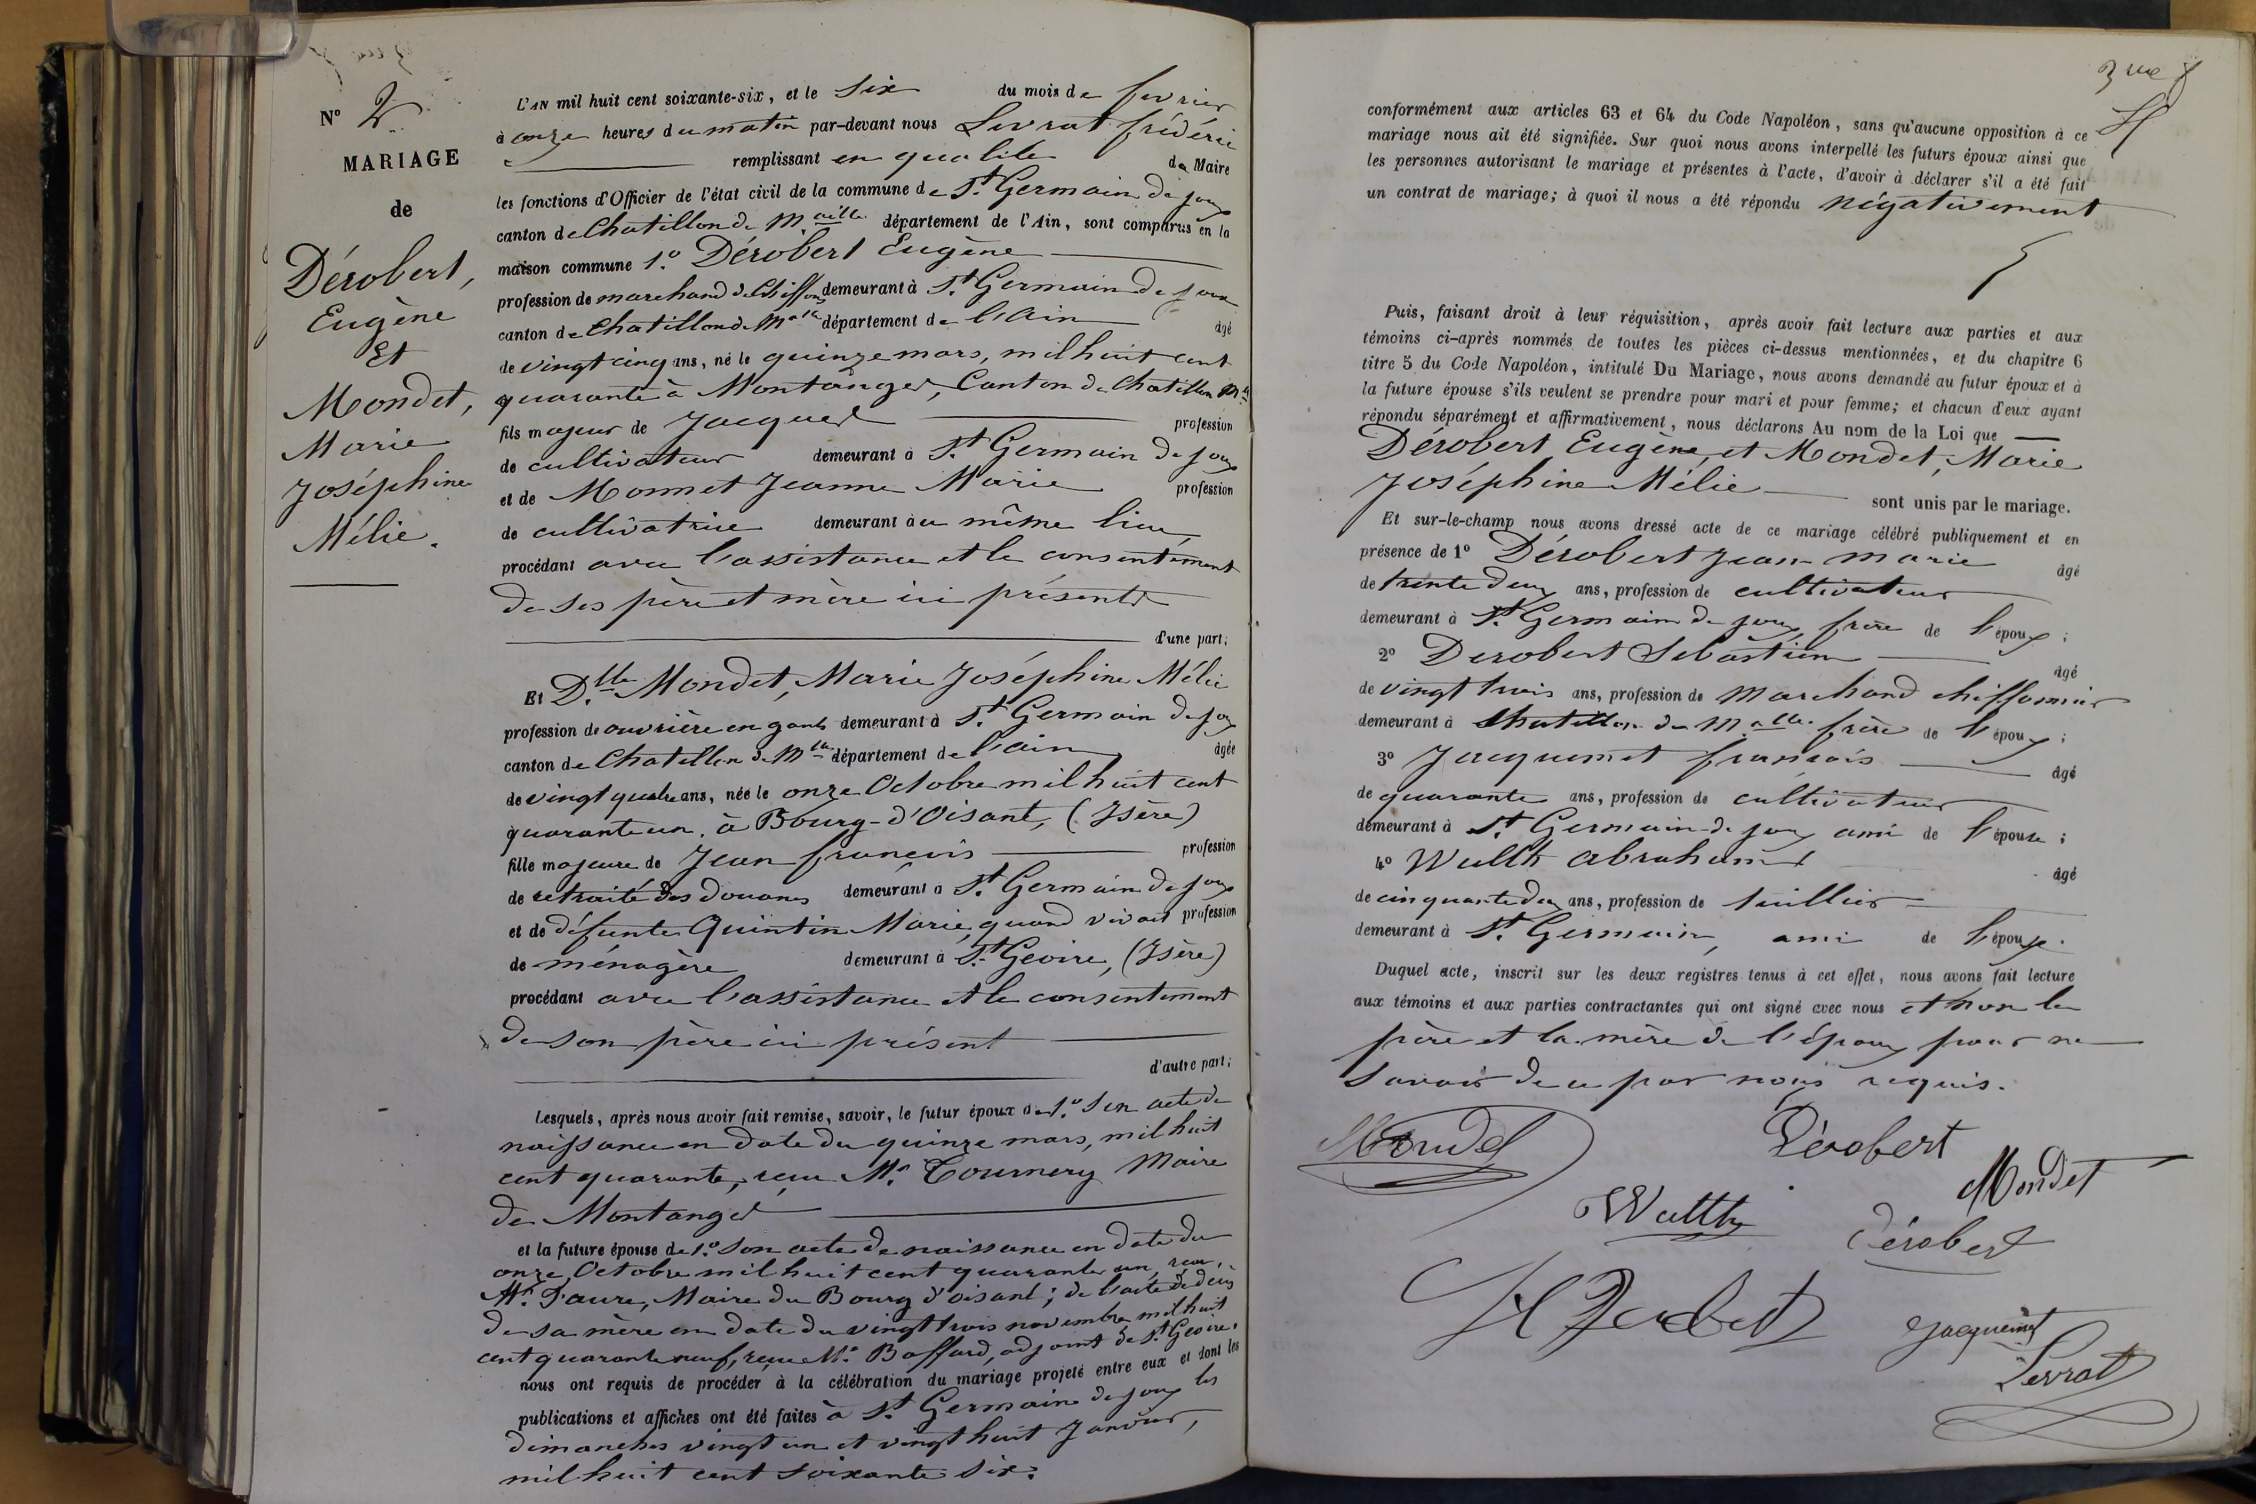 N° 2
MARIAGE
de
Dérobert,
Eugène
Et
Mondet,
Marie
Joséphine
Mélie.
L'AN mil huit cent soixante-six, et le six du mois de fevrier
à onze heures du matin par-devant nous Levrat frédéric
remplissant en qualité de Maire
les fonctions d'Officier de l'état civil de la commune de St. Germain de joux
canton de Chatillon de M.aille département de l'Ain, sont comparus en la
maison commune 1.° Dérobert Eugène
profession de marchand de Chiffons demeurant à St. Germain de joux
canton de Chatillon de M.lle département de l'Ain âgé
de vingt cinq ans, né le quinze mars, mil huit cent
quarante à Montanges, Canton de Chatillon M.lle
fils majeur de Jacques profession
de cultivateur demeurant à St. Germain de joux
et de Monnet Jeanne Marie profession
de cultivatrice demeurant au même lieu,
procédant avec l'assistance et le consentement
de ses père et mère ici présents
d'une part;
Et D.lle Mondet, Marie Joséphine Mélie
profession de ouvrière en gants demeurant à St. Germain de joux
canton de Chatillon de M.lle département de l'ain âgée
de vingt quatre ans, née le onze Octobre mil huit cent
quarante un, à Bourg-d'Oisant, (Isère)
fille majeure de Jean françois profession
de retraité des douanes demeurant à St. Germain de joux
et de défunte Quintin Marie, quand vivait profession
de ménagère demeurant à St. Geoire, (Isère)
procédant avec l'assistance et le consentement
de son père ici présent
d'autre part;
Lesquels, après nous avoir fait remise, savoir, le futur époux de 1.° Son acte de
naissance en date du quinze mars, mil huit
cent quarante, reçu Mr. Tournery Maire
de Montanges
et la future épouse de 1.° Son acte de naissance en date du
onze Octobre mil huit cent quarante un, reçu,
Mr. Faure, Maire du Bourg d'oisant; de l'acte de décès
de sa mère en date du vingt trois novembre mil huit
cent quarante neuf, reçu Mr. Boffard, adjoint de St. Geoire.
nous ont requis de procéder à la célébration du mariage projeté entre eux et dont les
publications et affiches ont été faites à St. Germain de joux les
dimanches vingt un et vingt huit Janvier,
mil huit cent soixante six.
conformément aux articles 63 et 64 du Code Napoléon, sans qu'aucune opposition à ce
mariage nous ait été signifiée. Sur quoi nous avons interpellé les futurs époux ainsi que
les personnes autorisant le mariage et présentes à l'acte, d'avoir à déclarer s'il a été fait
un contrat de mariage; à quoi il nous a été répondu négativement
Puis, faisant droit à leur réquisition, après avoir fait lecture aux parties et aux
témoins ci-après nommés de toutes les pièces ci-dessus mentionnées, et du chapitre 6
titre 5 du Code Napoléon, intitulé Du Mariage, nous avons demandé au futur époux et à
la future épouse s'ils veulent se prendre pour mari et pour femme; et chacun d'eux ayant
répondu séparément et affirmativement, nous déclarons Au nom de la Loi que
Dérobert, Eugène, et Mondet, Marie
Joséphine Mélie sont unis par le mariage.
Et sur-le-champ nous avons dressé acte de ce mariage célébré publiquement et en
présence de 1° Dérobert Jean marie âgé
de trente deux ans, profession de cultivateur
demeurant à St. Germain de joux frère de l'époux;
2° Derobert Sebastien âgé
de vingt trois ans, profession de marchand chiffonnier
demeurant à Chatillon de M.lle frère de l'époux;
3° Jacquemet françois âgé
de quarante ans, profession de cultivateur
demeurant à St. Germain de joux ami de l'épouse;
4° Wulth abraham âgé
de cinquante deux ans, profession de
demeurant à St. Germain, ami de l'épouse.
Duquel acte, inscrit sur les deux registres tenus à cet effet, nous avons fait lecture
aux témoins et aux parties contractantes qui ont signé avec nous et non le
père et la mère de l'époux pour ne
savoir de ce par nous requis.
Mondet
Dérobert
Mondet
Wultth
dérobert
Jacquemet
Levrat